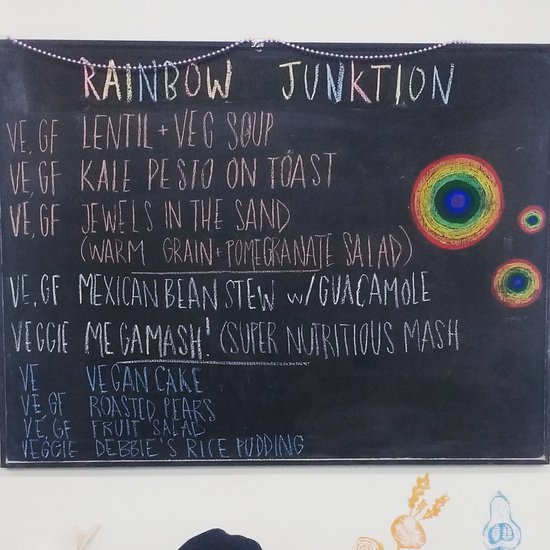 RAINBOW JUNKTION
VE, GF LENTIL + VEG SOUP
VE, GF KALE PESTO ON TOAST
VE, GF JEWELS IN THE SAND
(WARM GRAIN + POMEGRANATE SALAD)
VE, GF MEXICAN BEAN STEW w/GUACAMOLE
VEGGIE MEGAMASH! (SUPER NUTRITIOUS MASH
VE VEGAN CAKE
VE, GF ROASTED PEARS
VE, GF FRUIT SALAD
VEGGIE DEBBIE'S RICE PUDDING